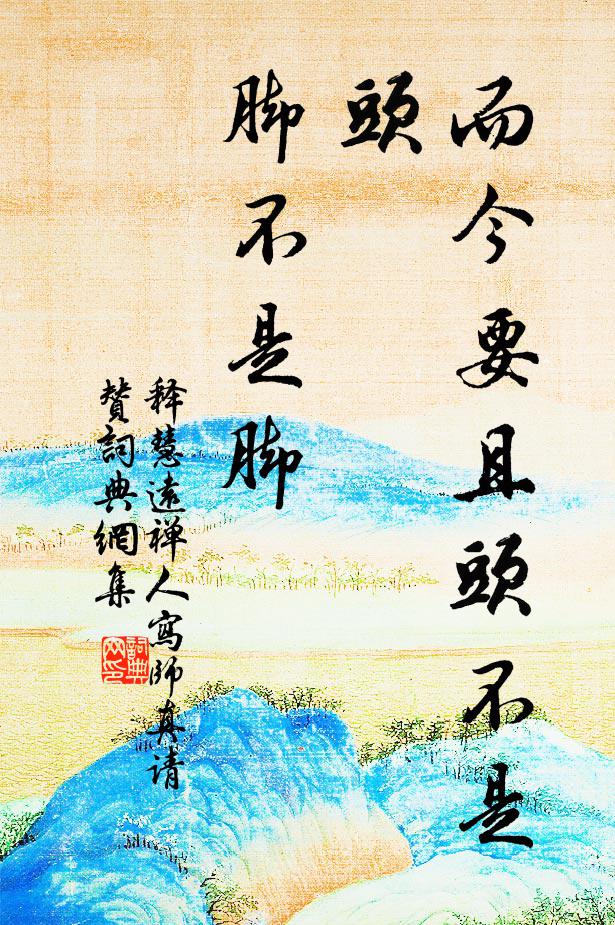 而今要且頭不是
頭
脚不是脚
释慧遠禅人寫師真请
赞詞典網集
詞典
网印